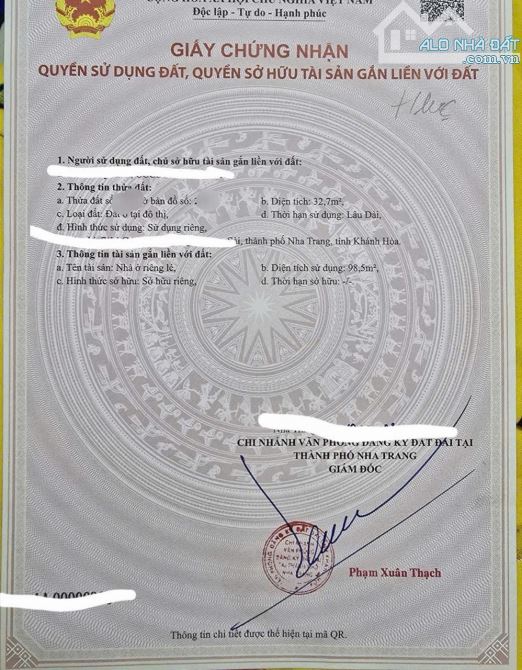 CỘNG HÒA XÃ HỘI CHỦ NGHĨA VIỆT NAM
Độc lập - Tự do - Hạnh phúc
ALO NHÀ ĐẤT
.com.vn
GIẤY CHỨNG NHẬN
QUYỀN SỬ DỤNG ĐẤT, QUYỀN SỞ HỮU TÀI SẢN GẮN LIỀN VỚI ĐẤT
1. Người sử dụng đất, chủ sở hữu tài sản gắn liền với đất:
2. Thông tin thửa đất:
a. Thửa đất số bản đồ số: b. Diện tích: 32,7m²,
c. Loại đất: tại đô thị, d. Thời hạn sử dụng: Lâu Dài,
đ. Hình thức sử dụng: Sử dụng riêng,
thành phố Nha Trang, tỉnh Khánh Hòa.
3. Thông tin tài sản gắn liền với đất:
a. Tên tài sản: Nhà ở riêng lẻ, b. Diện tích sử dụng: 98,5m²,
c. Hình thức sở hữu: Sở hữu riêng, d. Thời hạn sở hữu: -/-.
CHI NHÁNH VĂN PHÒNG ĐĂNG KÝ ĐẤT ĐAI TẠI
THÀNH PHỐ NHA TRANG
GIÁM ĐỐC
CHI NHÁNH
VĂN PHÒNG
ĐĂNG KÝ ĐẤT ĐAI
NHA TRANG
Phạm Xuân Thạch
Thông tin chi tiết được thể hiện tại mã QR.